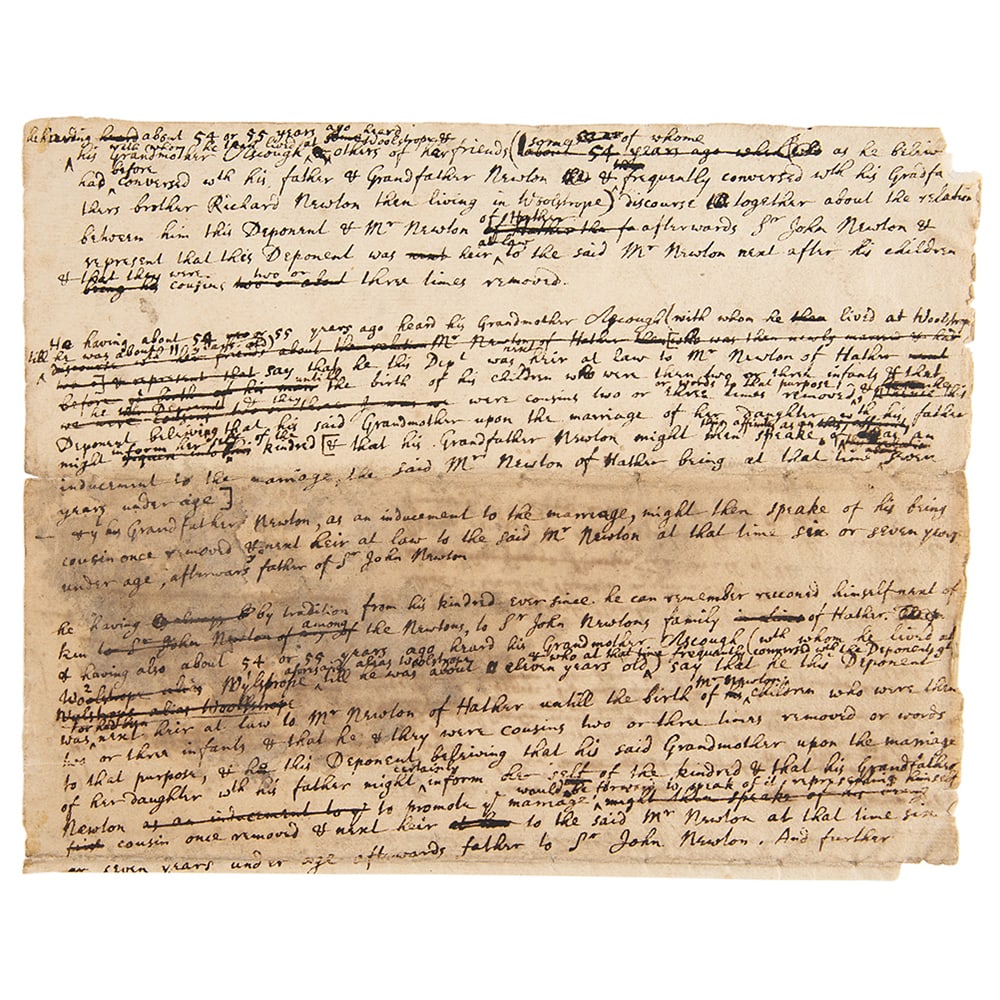 he having heard about 54 or 55 years ago heard
with whom he then lived at Woolstrope &
his Grandmother Ascough & others of her friends (some of whome
about 54 years ago who as he believ
before
had conversed wth his father & Grandfather Newton & frequently conversed wth his Gradfa
thers brother Richard Newton then living in Woolstrope) discourse together about the relation
between him this Deponent & Mr Newton of Hather afterwards Sr John Newton &
represent that this Deponent was next heir at law to the said Mr Newton next after his children
& that they were two or
being his cousins three times removed.
He having about 54 or 55 years ago heard his Grandmother Ascough (with whom he then lived at Woolstrope
till he was about 11 years old)
say that he this Dept was next heir at law to Mr Newton of Hather
until the birth of his children who were then two or three infants & that
he & they were cousins two or three times removed or words to that purpose,
Deponent believing that his said Grandmother upon the marriage of her daughter wth his father
might inform her self of this kindred [& that his Grandfather Newton might then speake of
inducement to the marriage, the said Mr Newton of Hather being at that time seven
years under age]
& yt his Grandfather Newton, as an inducement to the marriage, might then speake of his being
cousin once removed & next heir at law to the said Mr Newton at that time six or seven years
under age, afterwards father of Sr John Newton
he having by tradition from his kindred ever since he can remember reccond himself next of
kin among the Newtons, to Sr John Newtons family of Hather.
of having also about 54 or 55 years ago heard his Grandmother Ascough (wth whom he lived at
Wylstrope aforesaid alias Woolstrope till he was about eleven years old & who at that time frequently conversed with the Deponents
say that he this Deponent
Wylstrope alias Woolstrope
was next heir at law to Mr Newton of Hather untill the birth of Mr Newton's children who were then
two or three infants & that he & they were cousins two or three times removed or words
to that purpose, & this Deponent beleiving that his said Grandmother upon the marriage
of her daughter wth his father might certainly inform her self of the kindred & that his Grandfather
Newton as an inducement to promote ye marriage would be forward to speak of it representing himself
might then speake of his being
first cousin once removed & next heir to the said Mr Newton at that time six
or seven years under age afterwards father to Sr John Newton. And further